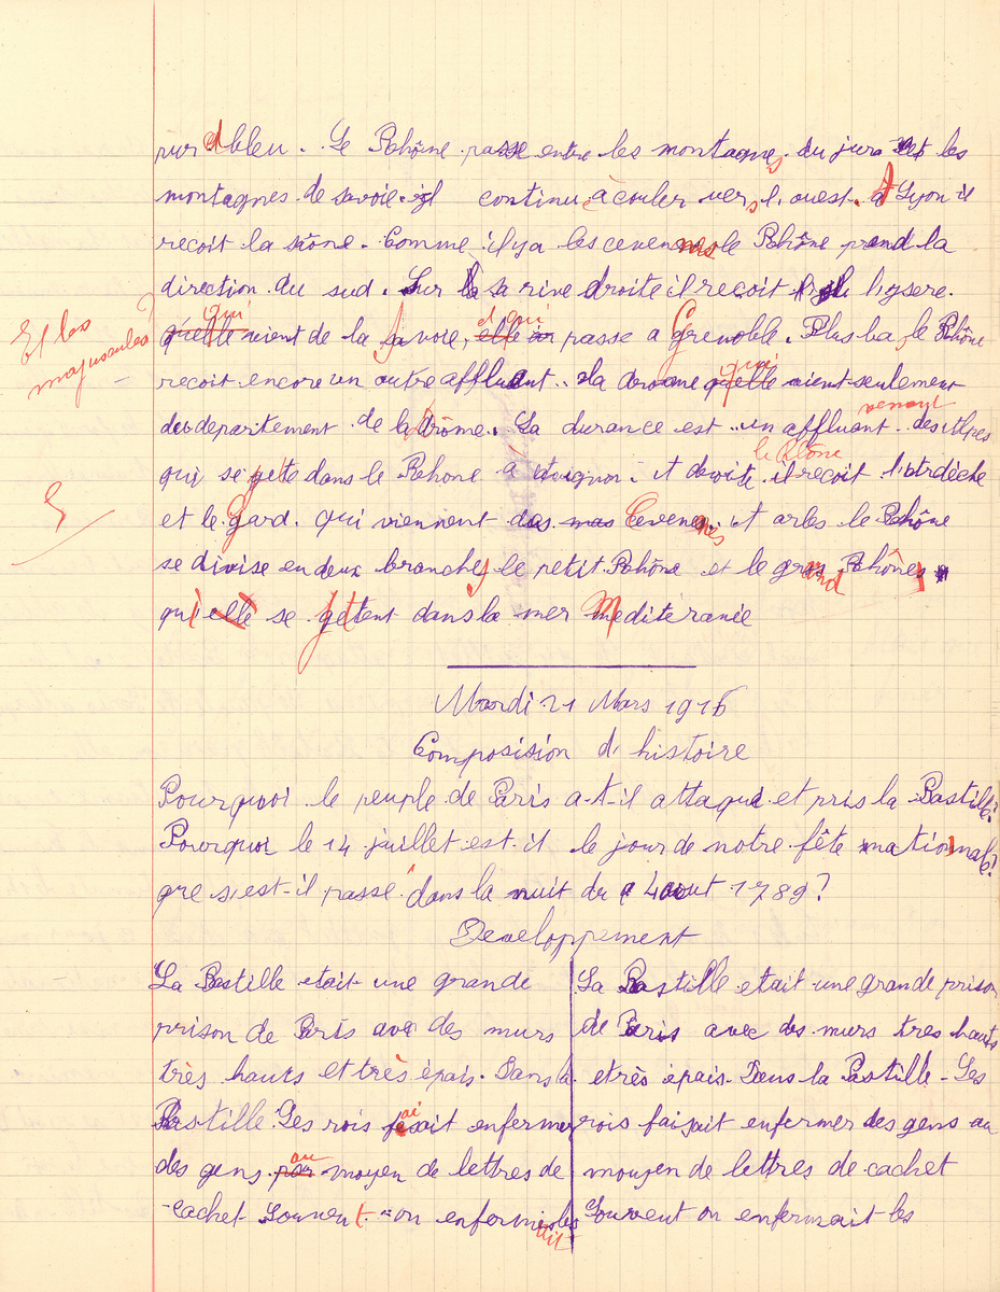 pur et bleu. Le Rhône passe entre les montagnes du jura et les
montagnes de savoie. il continu à couler vers l'ouest. A Lyon il
recoit la sâone. Comme il y a les cevennes le Rhône prend la
direction du sud. Sur sa rive droite il recoit l'ysere.
qu'elle qui vient de la Savoie, elle et qui passe a Grenoble. Plus ba, le Rhône
Et les
majuscules ?
recoit encore un autre affluent. la drome qu'elle qui vient seulement
venant
du departement de la Drôme. La durance est un affluant des Alpes
le Rhône
qui se jette dans le Rhone à Avignon. A droite il recoit l'Ardèche
5
et le Gard. qui viennent des mas Cevennes. A arles le Rhône
se divise en deux branches, le petit Rhône et le grand Rhône
qui elle se jettent dans la mer Mediteranée
Mardi 21 Mars 1916
Composision d'histoire
Pourquoi le peuple de Paris a-t-il attaqué et pris la Bastille?
Pourquoi le 14 juillet est-il le jour de notre fête nationale?
que s'est-il passé dans la nuit du 4 aout 1789?
Developpement
La Bastille etait une grande
prison de Paris avec des murs
très hauts et très épais. Dans la
Bastille. Les rois faisait enfermer
des gens par au moyen de lettres de
cachet. Souvent on enfermait les
La Bastille etait une grande prison
de Paris avec des murs tres hauts
et rès épais. Dans la Bastille. Les
rois faisait enfermer des gens au
moyen de lettres de cachet
Souvent on enfermait les